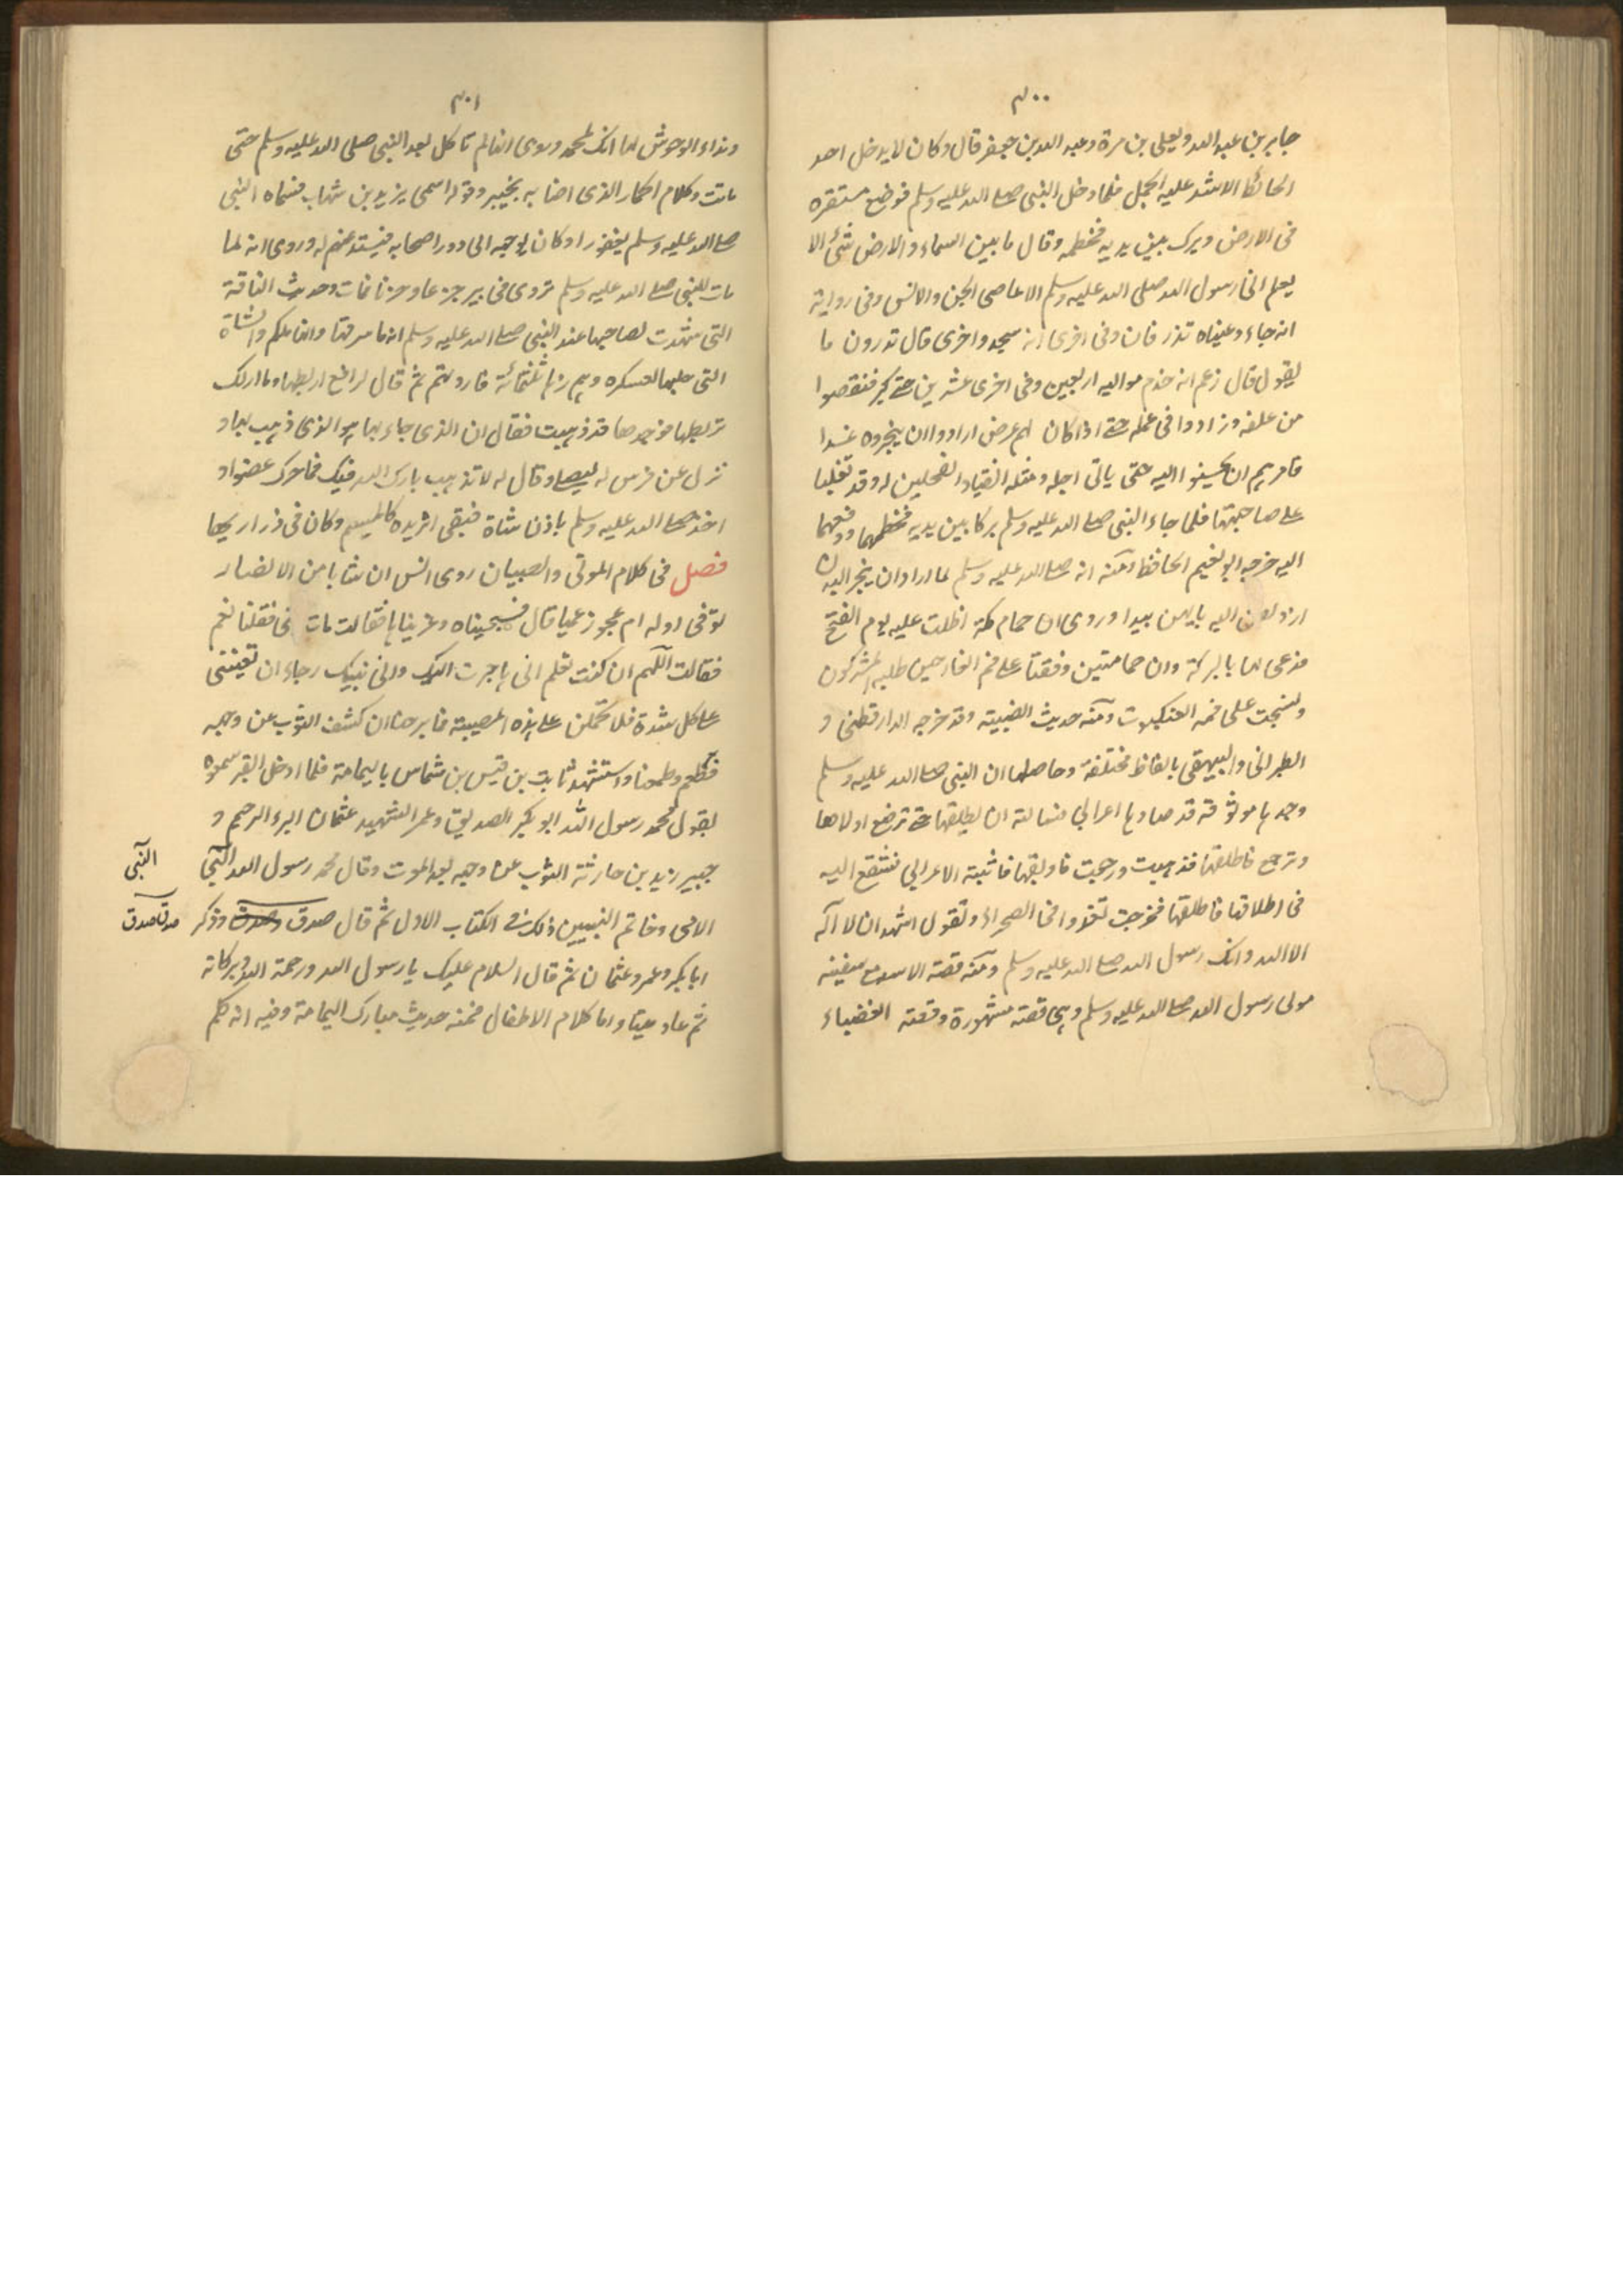 ٤٠٠
جابر بن عبد الله ويعلى بن مرة وعبد الله بن جعفر قال وكان لا يدخل احد
الحائط الا شد عليه الجمل فلما دخل النبي صلى الله عليه وسلم فوضع مستقره
فى الارض وبرك بين يديه فخطمه وقال ما بين السماء والارض شئ الا
يعلم انى رسول الله صلى الله عليه وسلم الا عاصى الجن والانس وفى رواية
انه جاء وعيناه تذرفان وفى اخرى انه سجد واخرى قال تدرون ما
يقول قال زعم انه خدم مواليه اربعين وفى اخرى عشرين حتى كبر فنقصوا
من علفه وزادوا فى عمله حتى اذا كان لهم عرض ارادوا ان ينحروه غدا
فامرهم ان يحسنوا اليه حتى ياتى اجله ومثله انقياد الفحلين له وقد تغلبا
على صاحبتها فلما جاء النبي صلى الله عليه وسلم بركا بين يديه فخطمهما ودفعهما
اليه خرجه ابو نعيم الحافظ ومنه انه صلى الله عليه وسلم لما اراد ان ينحر البدن
ازدلفن اليه بايهن يبدا وروى ان حمام مكة اظلت عليه يوم الفتح
فدعى لها بالبركة وان حمامتين وقفتا على فم الغار حين طلبه المشركون
ونسجت على فمه العنكبوت ومنه حديث الضبية وقد خرجه الدارقطنى و
الطبرانى والبيهقى بالفاظ مختلفة وحاصلها ان النبي صلى الله عليه وسلم
وجدها موثوقة قد صادها اعرابي فسالته ان يطلقها حتى ترضع اولادها
وترجع فاطلقها فذهبت ورجعت فاوثقها فانتبه الاعرابي فشفع اليه
فى اطلاقها فاطلقها فخرجت تغدوا فى الصحراء وتقول اشهد ان لا اله
الا الله وانك رسول الله صلى الله عليه وسلم ومنه قصة الاسد مع سفينه
مولى رسول الله صلى الله عليه وسلم وهى قصة مشهورة وقصة العضباء
٤٠١
ونداء الوحوش لها انك لمحمد وروى انها لم تاكل بعد النبي صلى الله عليه وسلم حتى
ماتت وكلام الحمار الذى اصابه بخيبر وقوله اسمى يزيد بن شهاب فسماه النبي
صلى الله عليه وسلم يعفورا وكان يوجهه الى دور اصحابه فيستدعيهم له وروى انه لما
مات النبي صلى الله عليه وسلم تردى فى بير جزعا وحزنا فمات وحديث الناقة
التى شهدت لصاحبها عند النبي صلى الله عليه وسلم انه ما سرقها وانها ملكه والشاة
التى حلبها لعسكره وهم زها ثلثمائة فارواهم ثم قال لرافع اربطها وما اراك
تربطها فوجدها قد ذهبت فقال ان الذى جاء بها هو الذى ذهب بها و
نزل عن فرس له ليصلى وقال له لا تذهب بارك الله فيك فما حرك عضوا و
اخذ صلى الله عليه وسلم باذن شاة فبقى اثر يده كالميسم وكان فى ذراريها
فصل فى كلام الموتى والصبيان روى انس ان شابا من الانصار
توفى وله ام عجوز عميا قال فسجيناه وعزيناها فقالت مات ابنى فقلنا نعم
فقالت اللهم ان كنت تعلم انى هاجرت اليك والى نبيك رجاء ان تعيننى
على كل شدة فلا تحملن على هذه المصيبة فما برحنا ان كشف الثوب عن وجهه
فطعم وطعمنا واستشهد ثابت بن قيس بن شماس باليمامة فلما ادخل القبر سمعوه
يقول محمد رسول الله ابو بكر الصديق وعمر الشهيد عثمان البر الرحيم و
جبير زيد بن حارثة الثوب عن وجهه بعد الموت وقال محمد رسول الله النبي
الامى وخاتم النبيين ذلك فى الكتاب الاول ثم قال صدق وصدق وذكر
ابا بكر وعمر وعثمان ثم قال السلام عليك يا رسول الله ورحمة الله وبركاته
ثم عاد ميتا واما كلام الاطفال فمنه حديث مبارك اليمامة وفيه انه كلم
النبي
صدق صدق